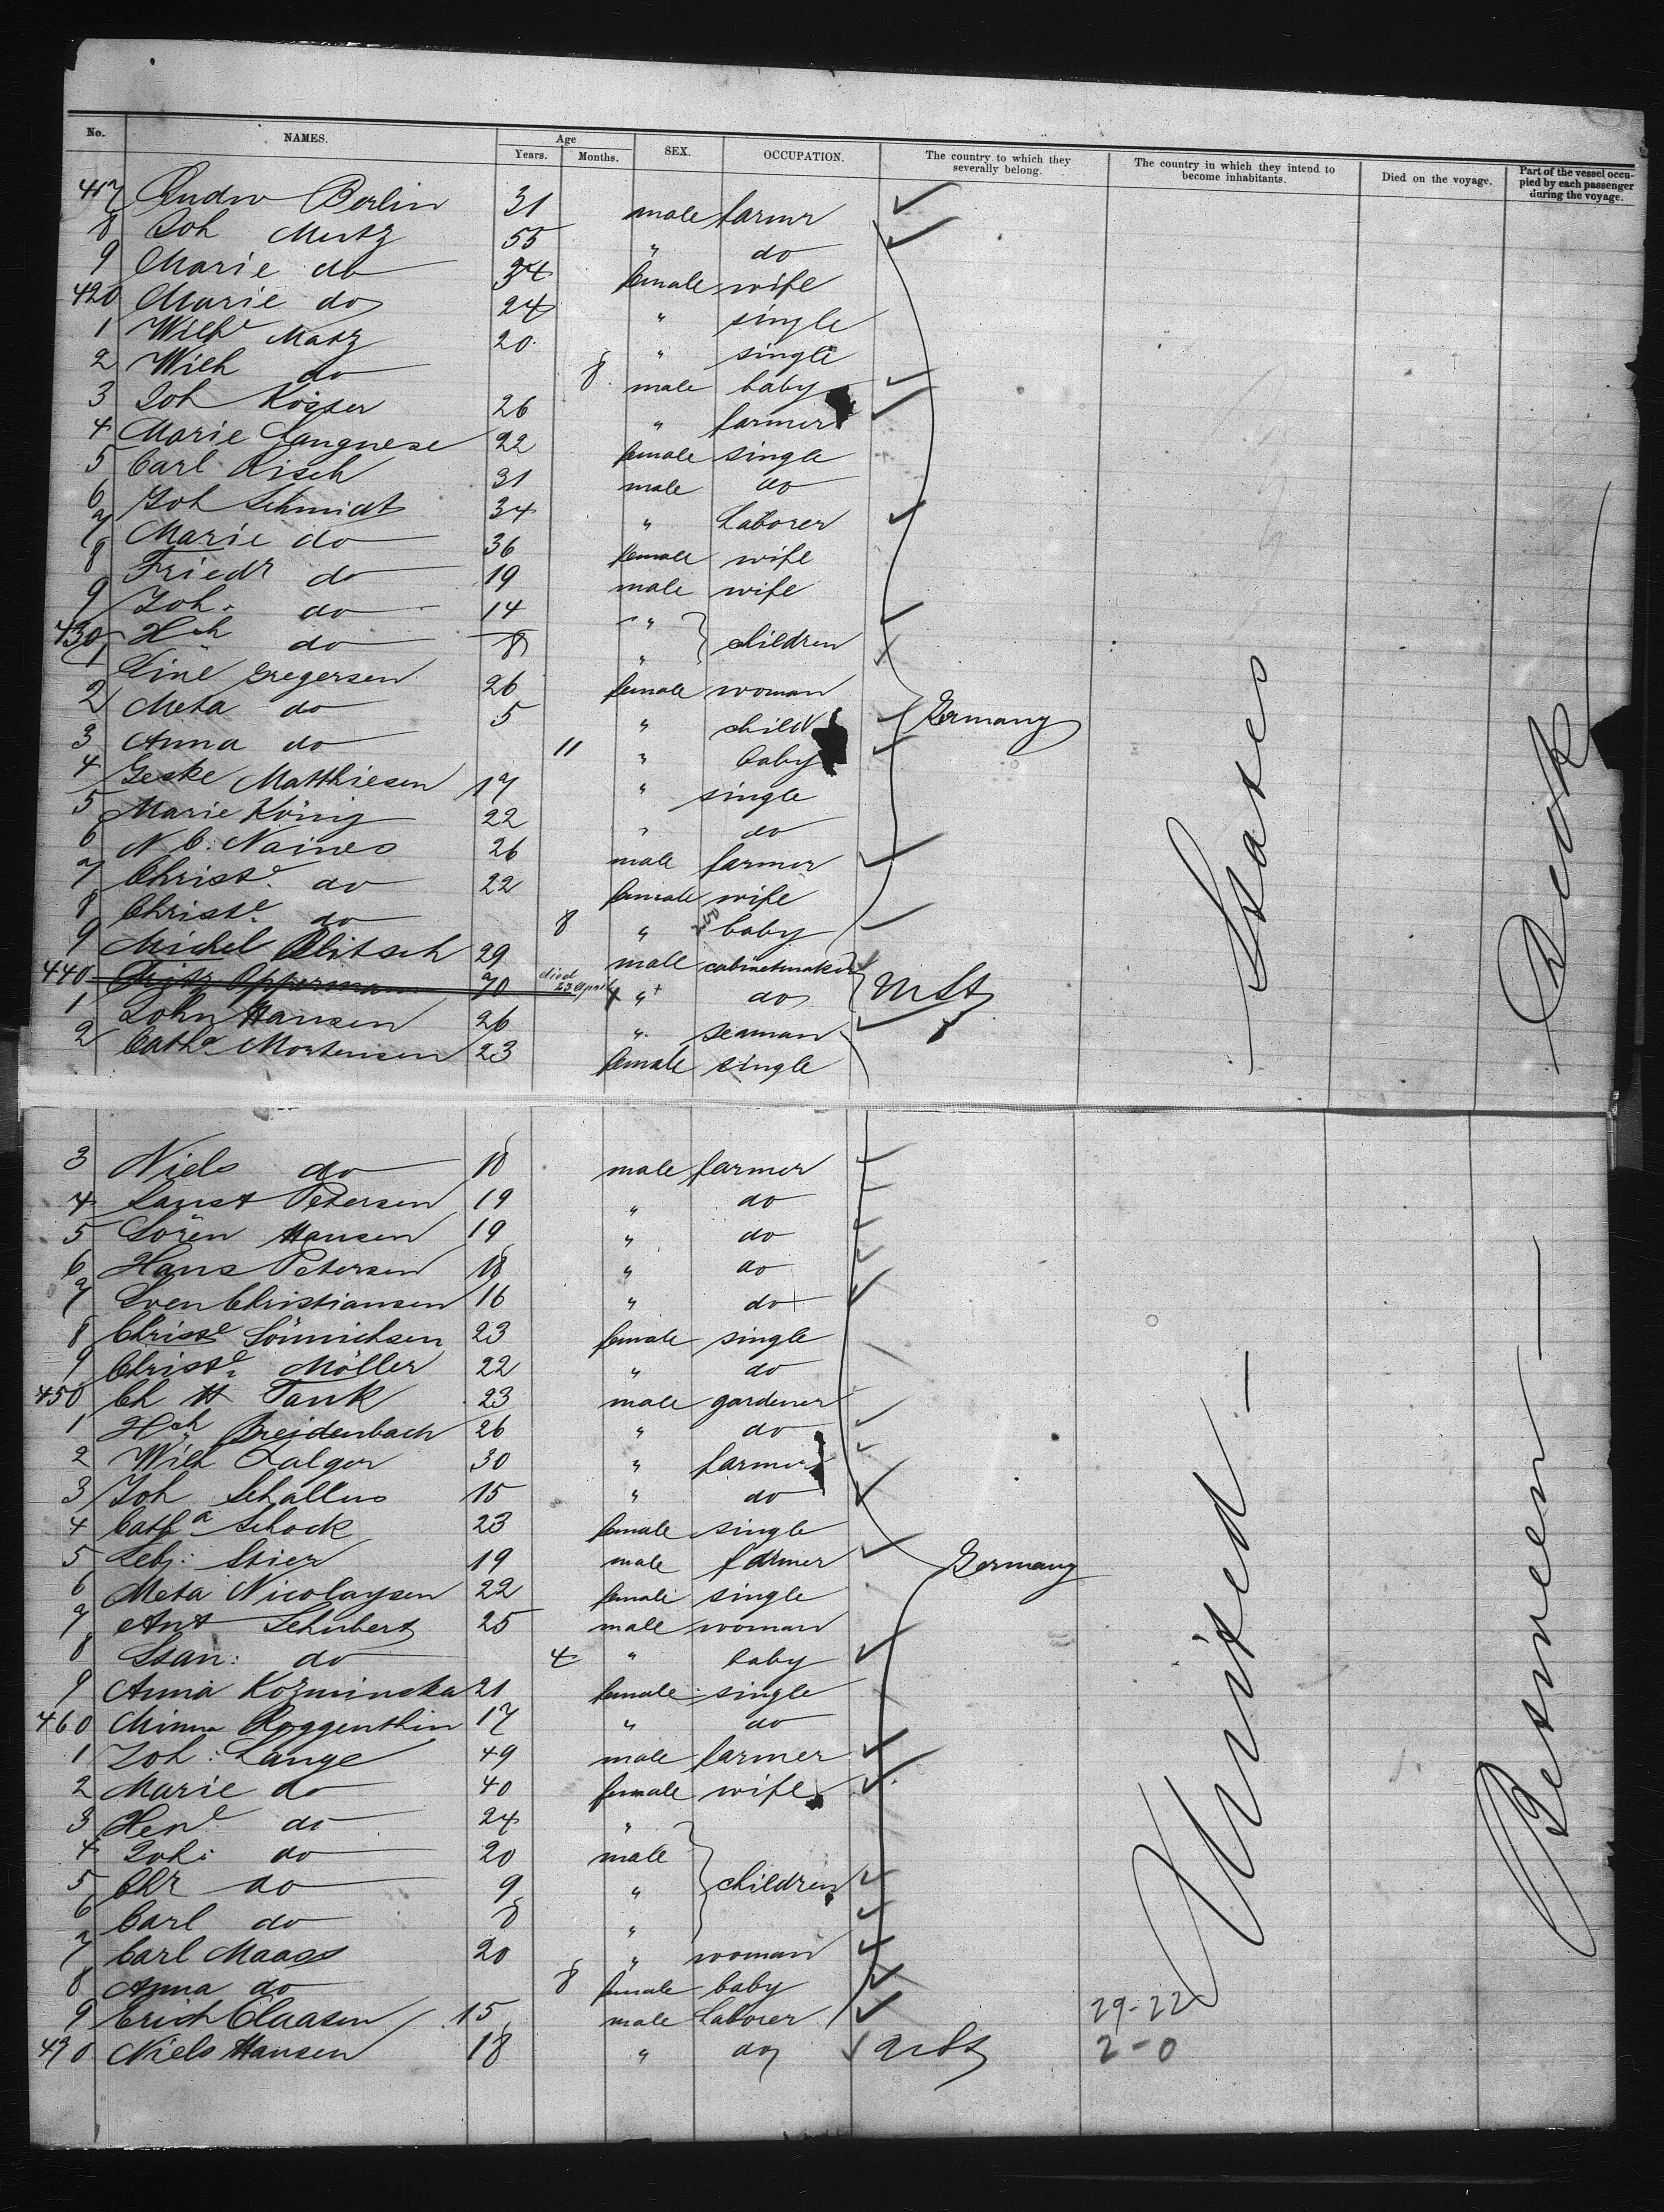 No. NAMES. Age Years. Months. SEX. OCCUPATION. The country to which they severally belong. The country in which they intend to become inhabitants. Died on the voyage. Part of the vessel occupied by each passenger during the voyage.
417 Ludw Berlin 31 male farmr
8 Joh Mertz 55 " do
9 Marie do 34 female wife
420 Marie do 24 " single
1 Wilhe Matz 20 " single
2 Wilh do 8 male baby
3 Joh Köster 26 " farmer
4 Marie Langnese 22 female single
5 Carl Risch 31 male do
6 Joh Schmidt 34 " Laborer
7 Marie do 36 female wife
8 Friedr do 19 male wife
9 Joh. do 14 "
430 Hch do 8 " children
1 Line Gregersen 26 female woman
2 Meta do 5 " child Germany
3 Anna do 11 " baby
4 Geske Matthiesen 17 " single
5 Marie König 22 " do
6 N C. Naines 26 male farmer
7 Christe. do 22 female wife
8 Christe. do 8 " baby
9 Michel 29 male cabinetmaker
440 Oppermann 70 died 23 April " do U St
1 John Hansen 26 " seaman
2 Catha Mortensen 23 female single
3 Niels do 18 male farmer
4 Laust Petersen 19 " do
5 Sören Hansen 19 " do
6 Hans Petersen 18 " do
7 Sven Christiansen 16 " do
8 Christe Sönnichsen 23 female single
9 Christe. Möller 22 " do
450 Ch H Tank 23 male gardener
1 Hch Breidenbach 26 " do
2 Wilh Zalger 30 " farmer
3 Joh Schallus 15 " do
4 Catha Schock 23 female single
5 Seb: Stier 19 male farmer Germany
6 Meta Nicolaysen 22 female single
7 Ant Schubert 25 male woman
8 Stan: do 4 " baby
9 Anna Kozminska 21 female single
460 Minna Roggenthin 17 " do
1 Joh: Lange 49 male farmer
2 Marie do 40 female wife
3 Hene do 24 "
4 Joh: do 20 male
5 Chr do 9 " children
6 Carl do 8 "
7 Carl Maass 20 " woman
8 Anna do 8 female baby
9 Erich Claasen 15 male Laborer 29-22
470 Niels Hansen 18 " do U St 2-0
United States
Between Deck